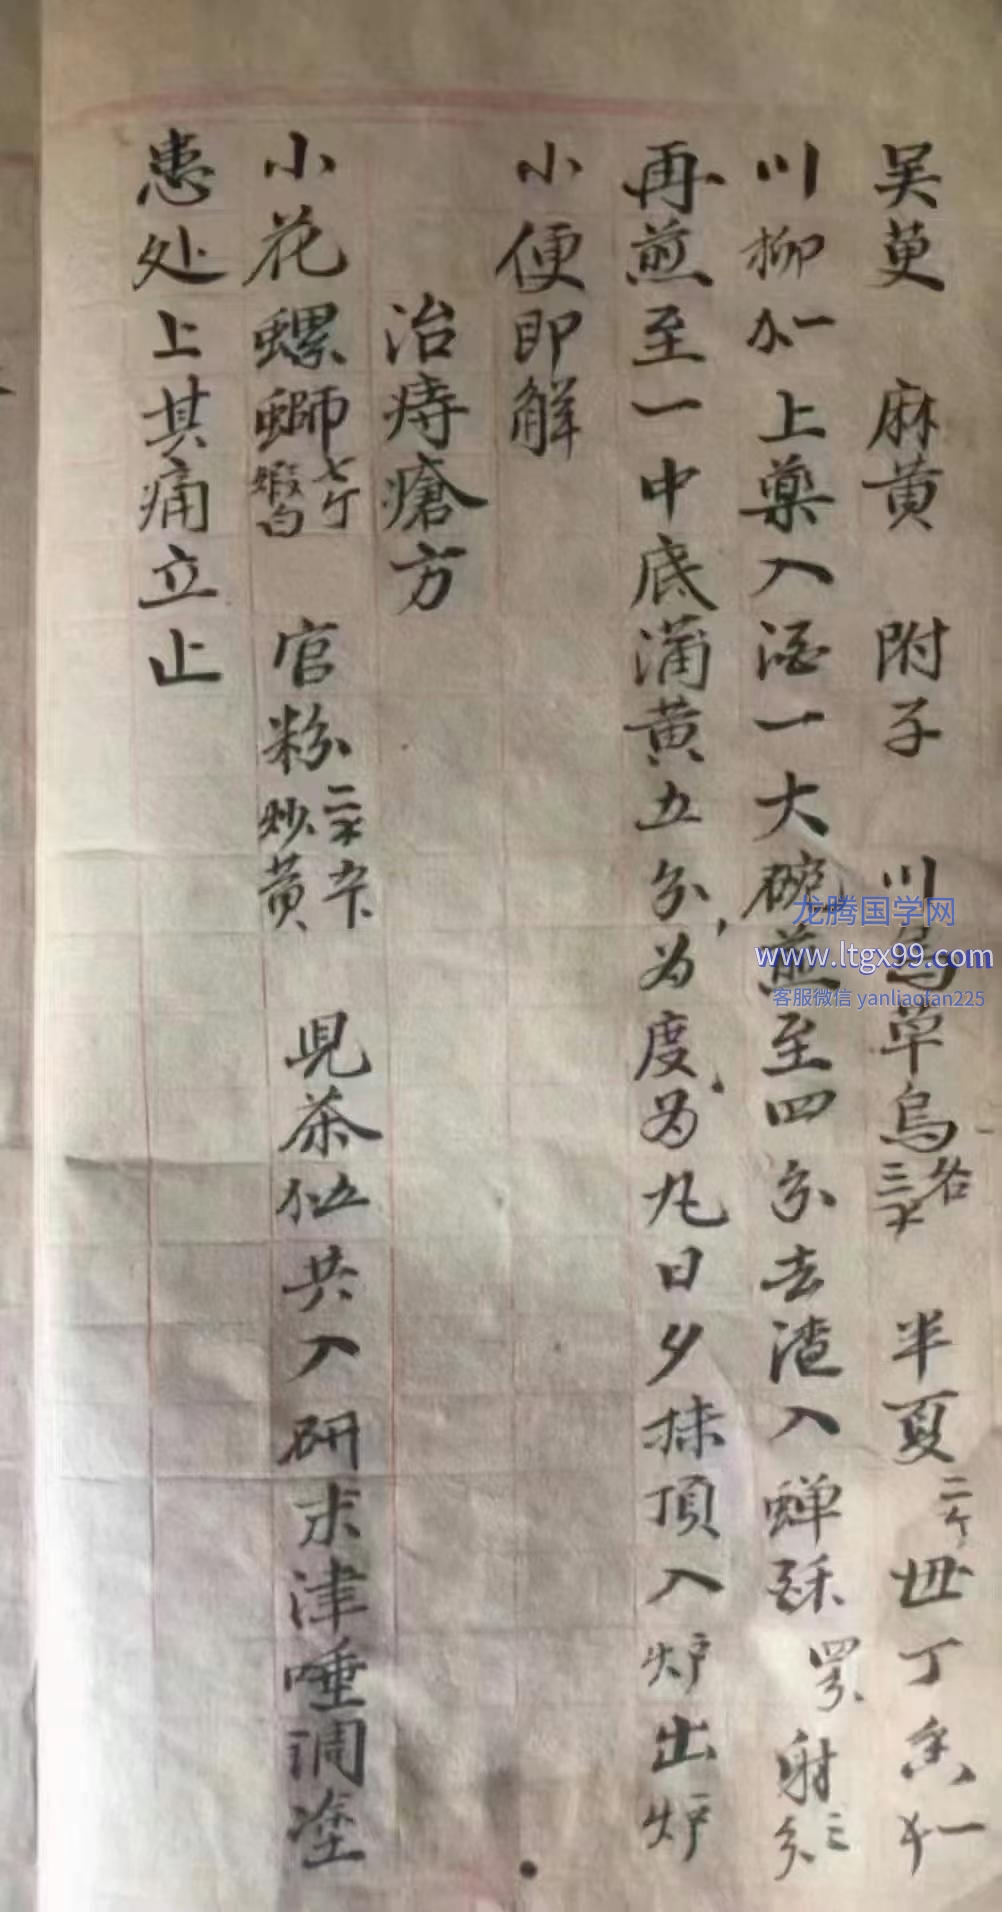 吴萸 麻黄 附子 川乌草乌各三 半夏二个 丁香一
川柳一 上藥入酒一大碗煎至四分去渣入蝉酥四分 射三分
再煎至一中底蒲黄五分为度为九日夕抹頂入炉出炉
小便即解
治痔瘡方
小花螺螄七个煅白 官粉二五卜炒黄 児茶五共入研末津唾调塗
患处上其痛立止
龙腾国学网
www.ltgx99.com
客服微信 yanliaofan225